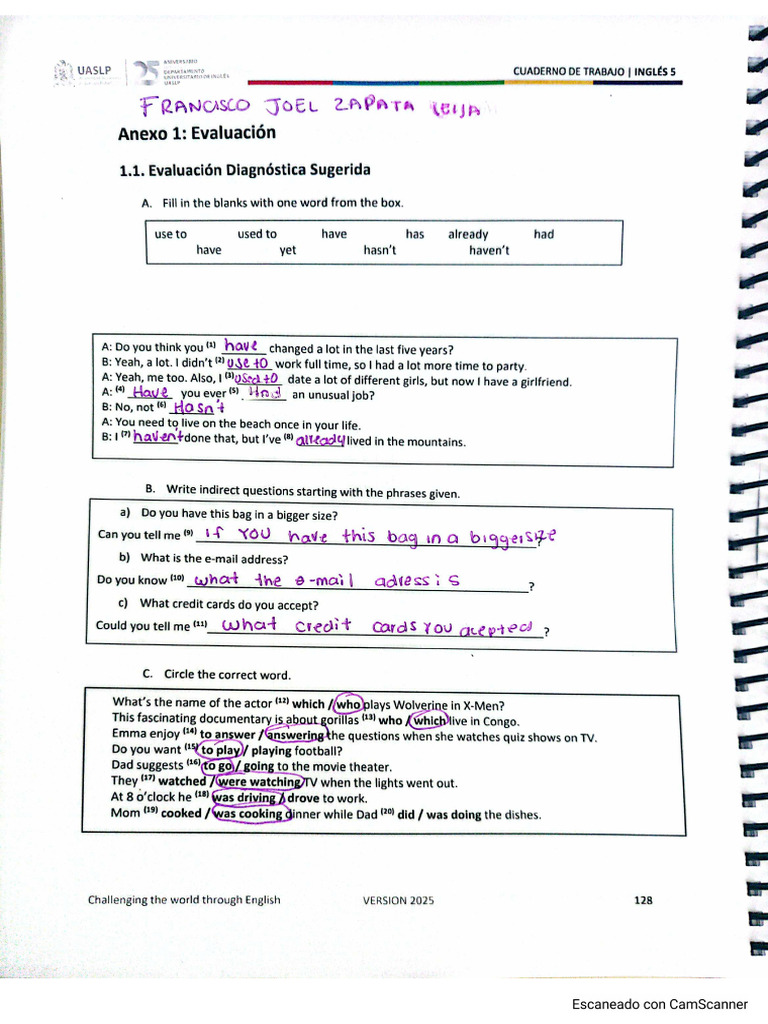 UASLP
25
ANIVERSARIO
DEPARTAMENTO
UNIVERSITARIO DE INGLÉS
UASLP
CUADERNO DE TRABAJO | INGLÉS 5
FRANCISCO JOEL ZAPATA LEIJA
Anexo 1: Evaluación
1.1. Evaluación Diagnóstica Sugerida
A. Fill in the blanks with one word from the box.
use to used to have has already had
have yet hasn't haven't
A: Do you think you (1) have changed a lot in the last five years?
B: Yeah, a lot. I didn't (2) use to work full time, so I had a lot more time to party.
A: Yeah, me too. Also, I (3) used to date a lot of different girls, but now I have a girlfriend.
A: (4) Have you ever (5) Had an unusual job?
B: No, not (6) Hasn't
A: You need to live on the beach once in your life.
B: I (7) haven't done that, but I've (8) already lived in the mountains.
B. Write indirect questions starting with the phrases given.
a) Do you have this bag in a bigger size?
Can you tell me (9) if YOU have this bag in a bigger size?
b) What is the e-mail address?
Do you know (10) what the e-mail adress is ?
c) What credit cards do you accept?
Could you tell me (11) what credit cards YOU acepted ?
C. Circle the correct word.
What's the name of the actor (12) which / who plays Wolverine in X-Men?
This fascinating documentary is about gorillas (13) who / which live in Congo.
Emma enjoy (14) to answer / answering the questions when she watches quiz shows on TV.
Do you want (15) to play / playing football?
Dad suggests (16) to go / going to the movie theater.
They (17) watched / were watching TV when the lights went out.
At 8 o'clock he (18) was driving / drove to work.
Mom (19) cooked / was cooking dinner while Dad (20) did / was doing the dishes.
Challenging the world through English VERSION 2025 128
Escaneado con CamScanner